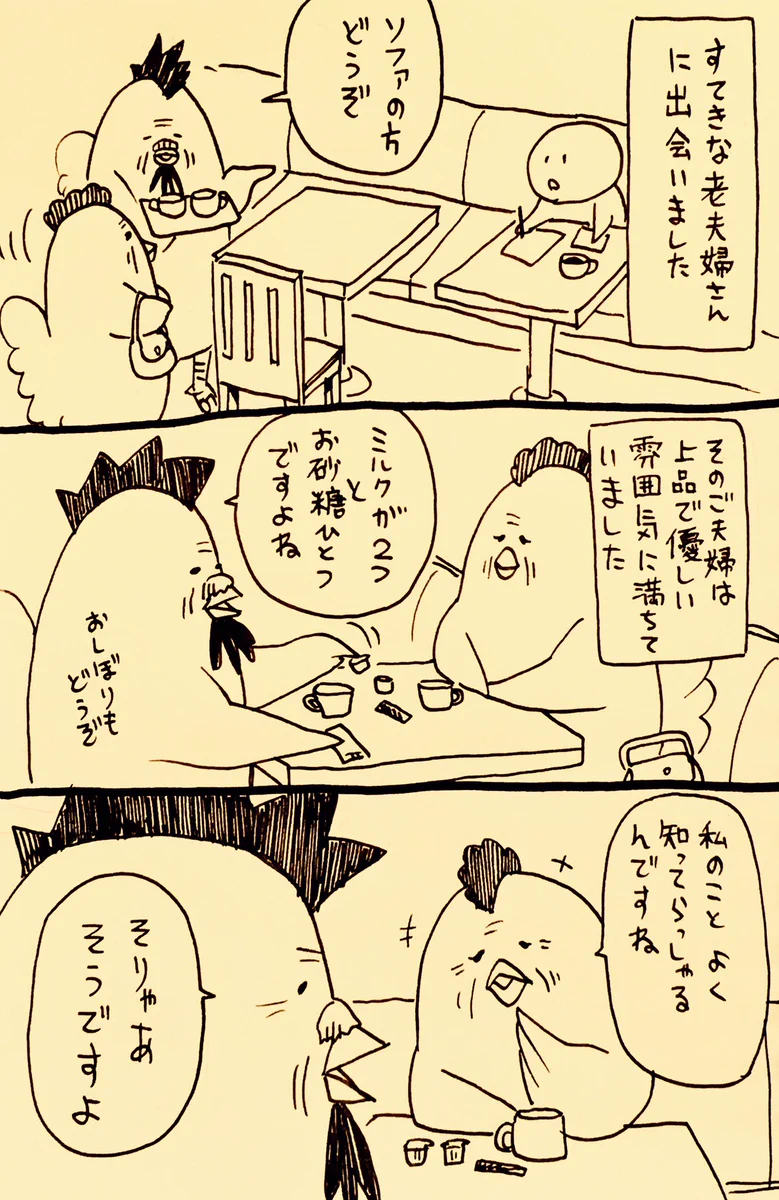 すてきな老夫婦さん
に出会いました
ソファの方
どうぞ
そのご夫婦は
上品で優しい
雰囲気に満ちて
いました
ミルクが2つ
と
お砂糖ひとつ
ですよね
おしぼりも
どうぞ
私のことよく
知ってらっしゃる
んですね
そりゃあ
そうですよ